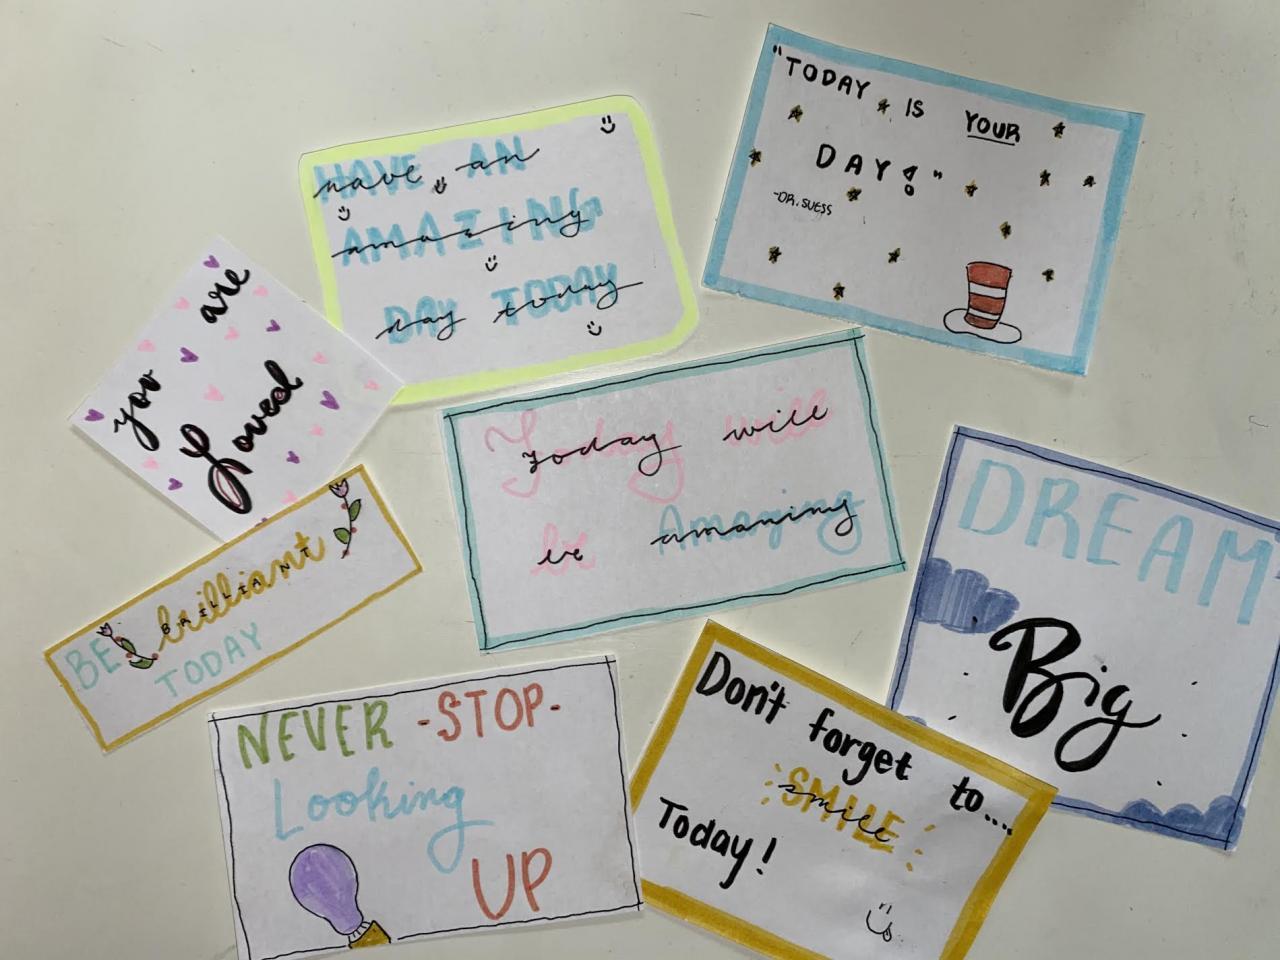 "TODAY IS YOUR
DAY!"
-DR. SUESS
HAVE AN
have an
AMAZING
amazing
DAY TODAY
day today
you are
Loved
Today will
today will
be Amazing
be amazing
DREAM
Big
BE brilliant
BRILLIANT
TODAY
NEVER -STOP-
Looking
UP
Don't forget to....
SMILE
smile
Today!